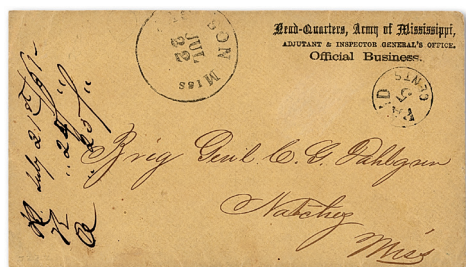 Head-Quarters, Army of Mississippi,
ADJUTANT & INSPECTOR GENERAL'S OFFICE.
Official Business.
SON MISS
JUL
22
PAID
5
CENTS
Brig Genl. C. G. Dahlgren
Natchez
Miss
R July 23
" 24 "
" 25 "